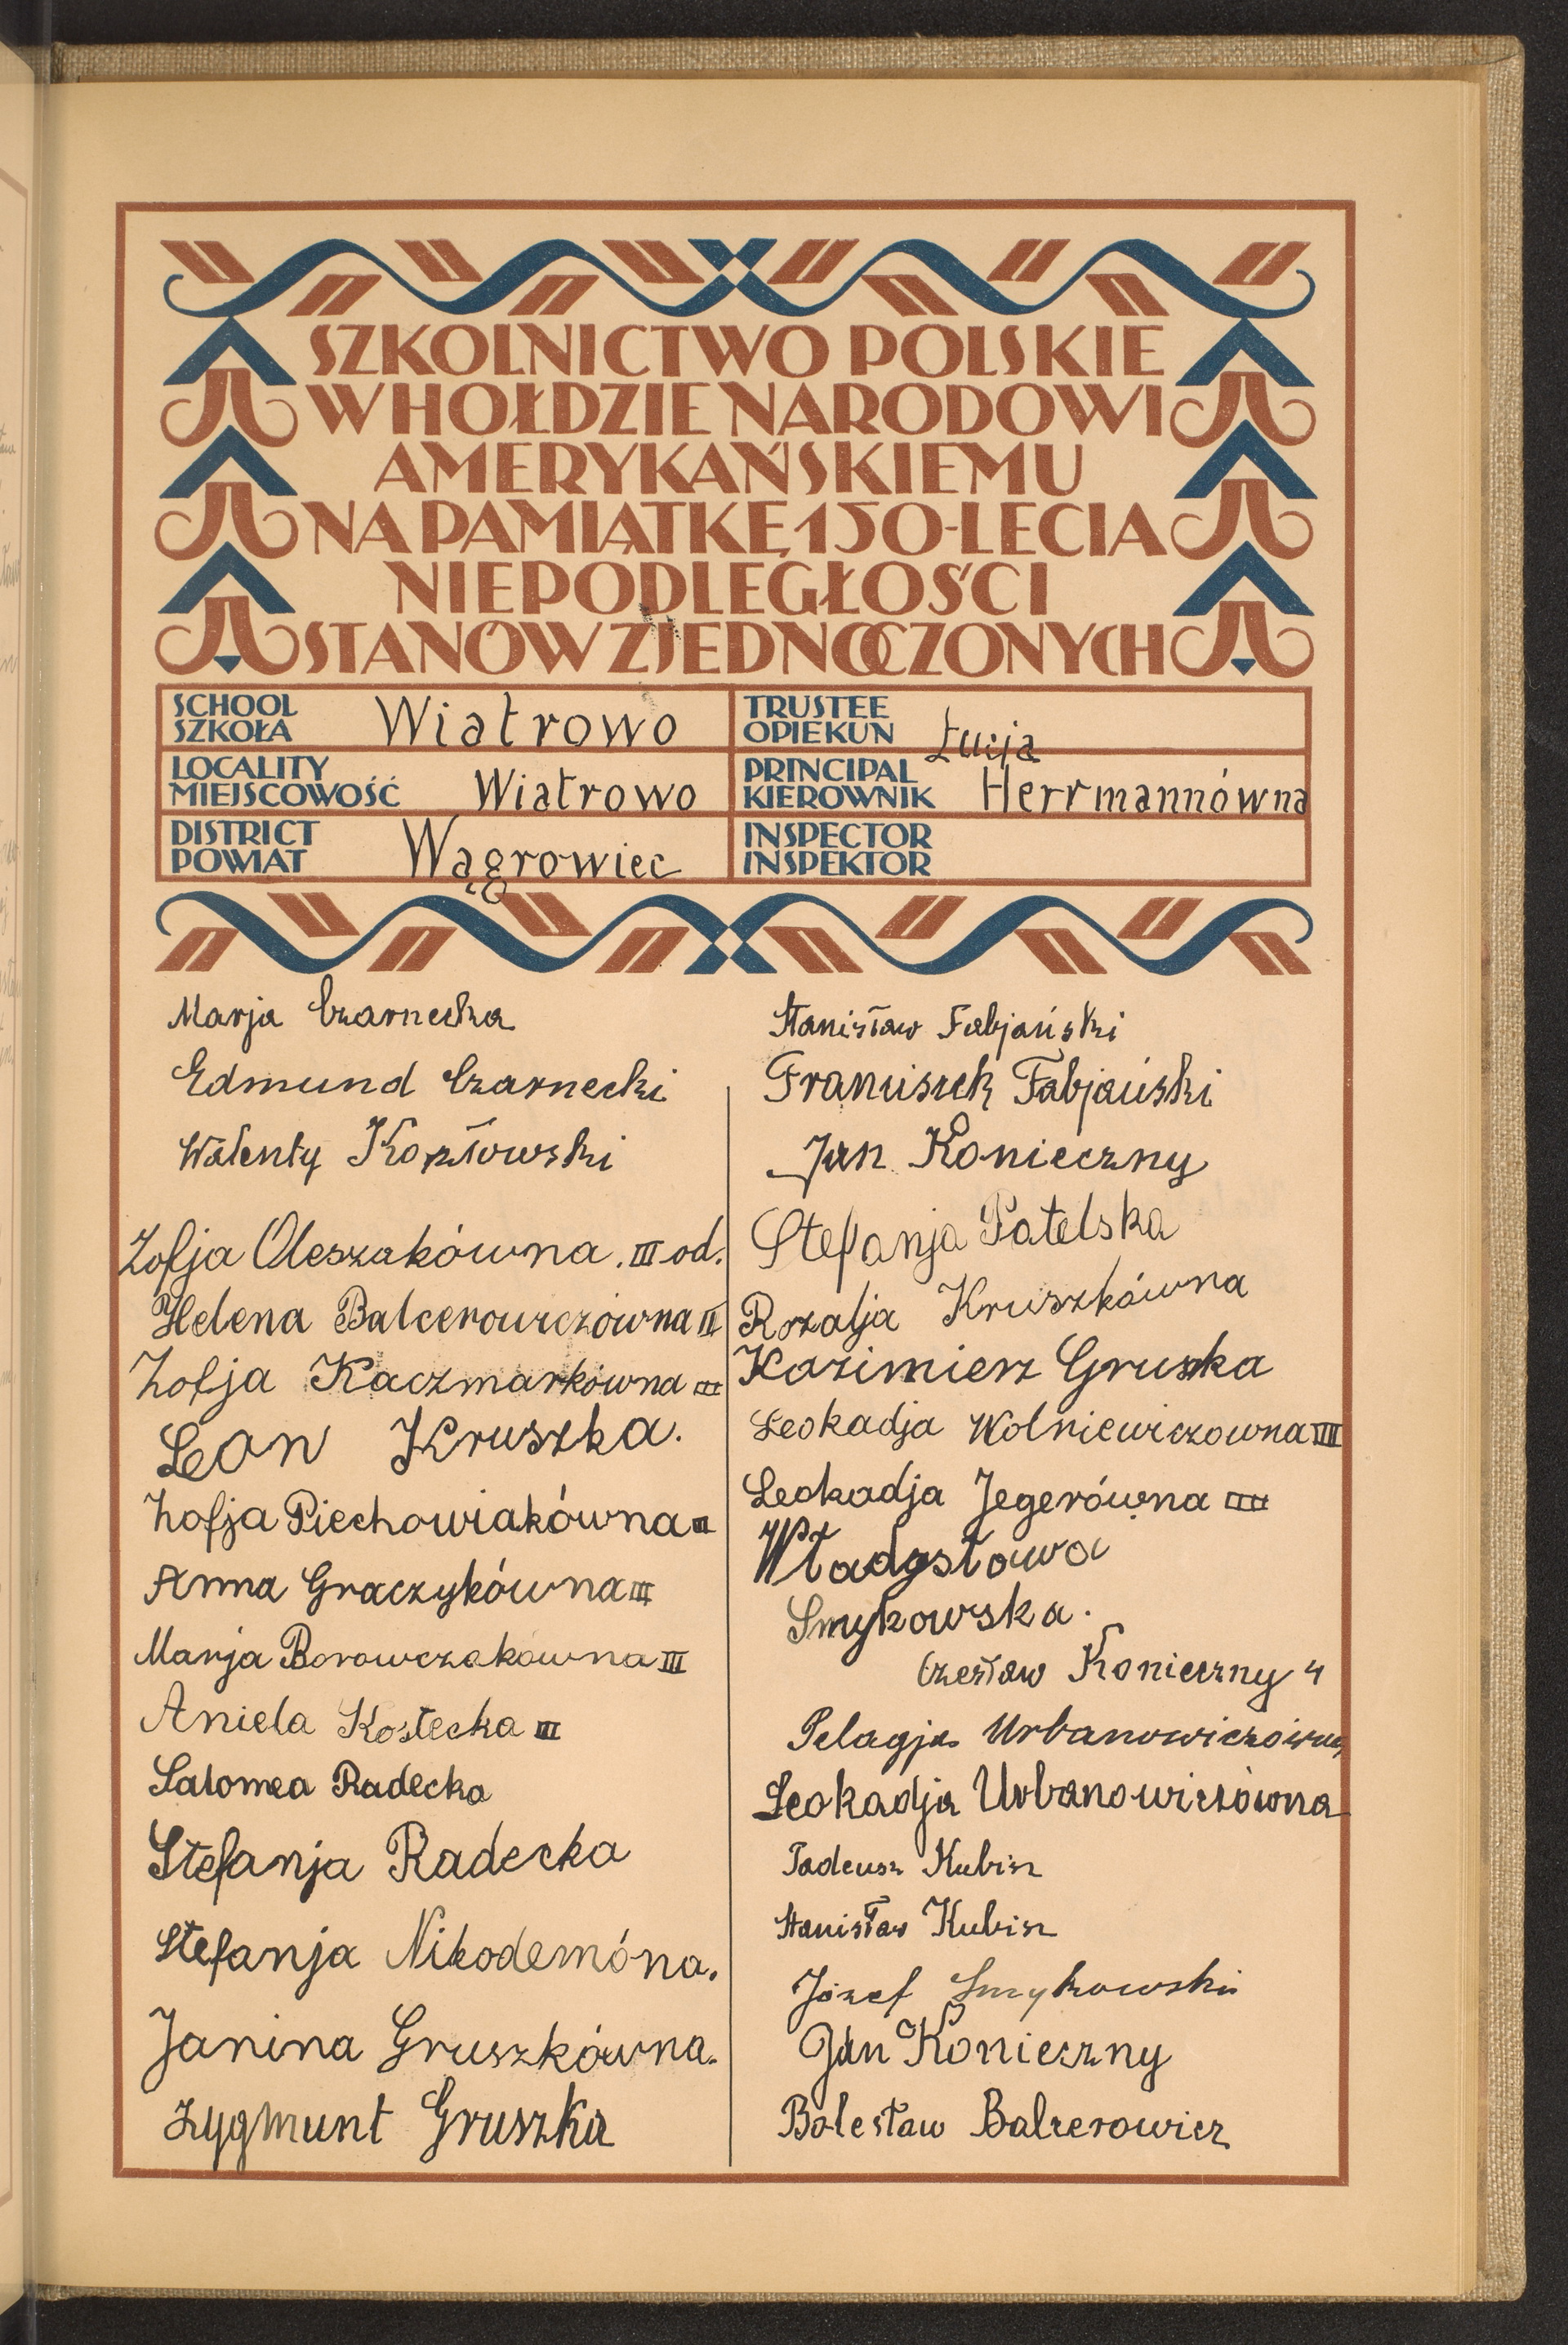 SZKOLNICTWO POLSKIE
W HOŁDZIE NARODOWI
AMERYKAŃSKIEMU
NA PAMIĄTKĘ 150-LECIA
NIEPODLEGŁOŚCI
STANÓW ZJEDNOCZONYCH
SCHOOL
SZKOŁA
Wiatrowo
TRUSTEE
OPIEKUN
Łucja
LOCALITY
MIEJSCOWOŚĆ
Wiatrowo
PRINCIPAL
KIEROWNIK
Herrmannówna
DISTRICT
POWIAT
Wągrowiec
INSPECTOR
INSPEKTOR
Marja Czarnecka
Edmund Czarnecki
Walenty Kozłowski
Zofja Oleszakówna. III od.
Helena Balcerowiczówna II
Zofja Kaczmarkówna III
Leon Kruszka.
Zofja Piechowiakówna III
Anna Graczykówna III
Marja Borowczakowna III
Aniela Kostecka III
Salomea Radecka
Stefanja Radecka
Stefanja Nikodemóna.
Janina Gruszkówna.
Zygmunt Gruszka
Stanisław Fabjański
Franciszek Fabjański
Jan Konieczny
Stefanja Patelska
Rozalja Kruszkówna
Kazimierz Gruszka
Leokadja Wolniewiczowna IIII
Leokadja Jegerówna IIII
Władysława
Smykowska.
Czesław Konieczny 4
Pelagja Urbanowiczówna
Leokadja Urbanowiczówna
Tadeusz Kubisz
Stanisław Kubisz
Józef Smykowski
Jan Konieczny
Bolesław Balcerowicz